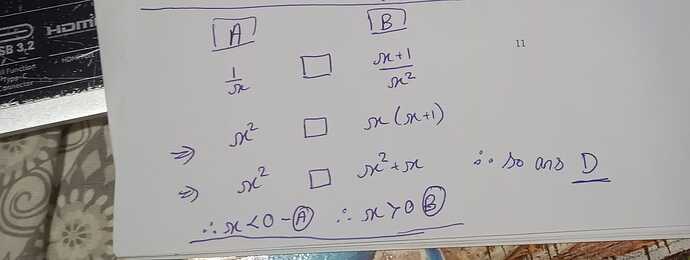 HDMI
SB 3.2
Type-C
A B
1/x □ x+1/x²
11
⇒ x² □ x(x+1)
⇒ x² □ x²+x ∴ so ans D
∴ x<0-Ⓐ ∴ x>0 Ⓑ